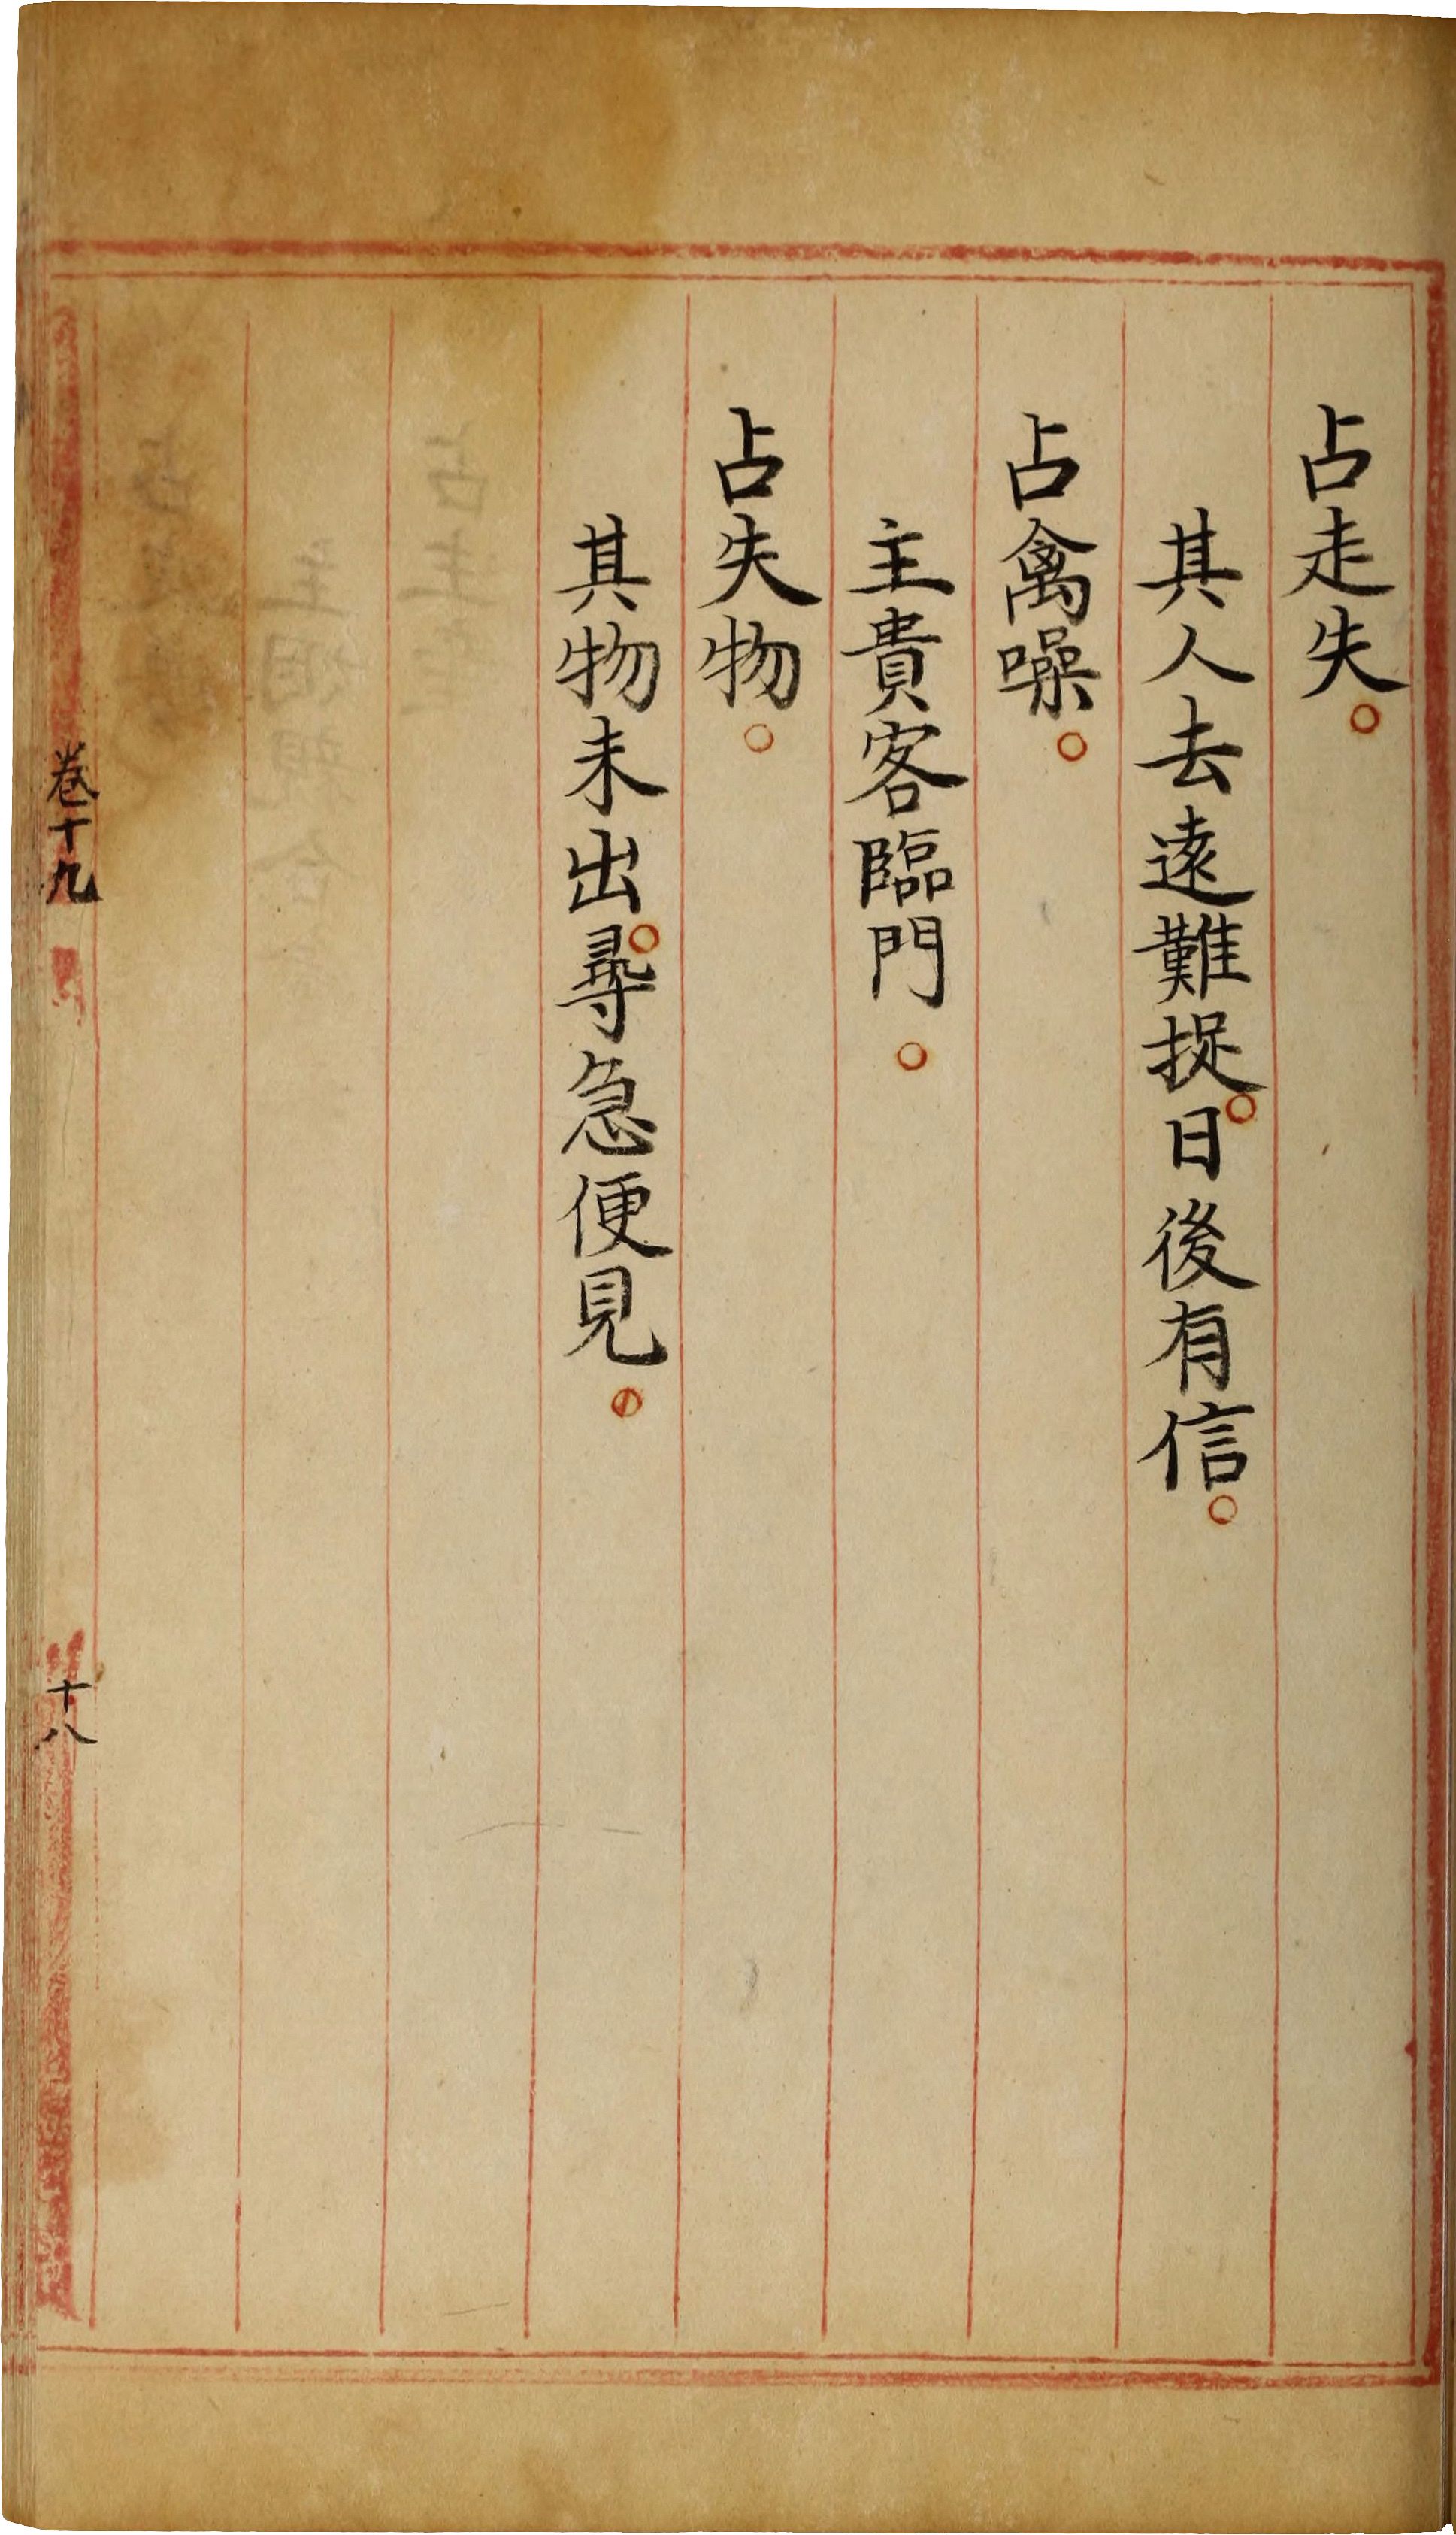 占走失。
其人去遠難捉。日後有信。
占禽噪。
主貴客臨門。
占失物。
其物未出。尋急便見。
卷十九
十八